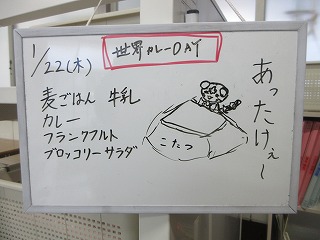 1/22(木)
世界カレーDAY
麦ごはん 牛乳
カレー
フランクフルト
ブロッコリーサラダ
こたつ
あったけぇー